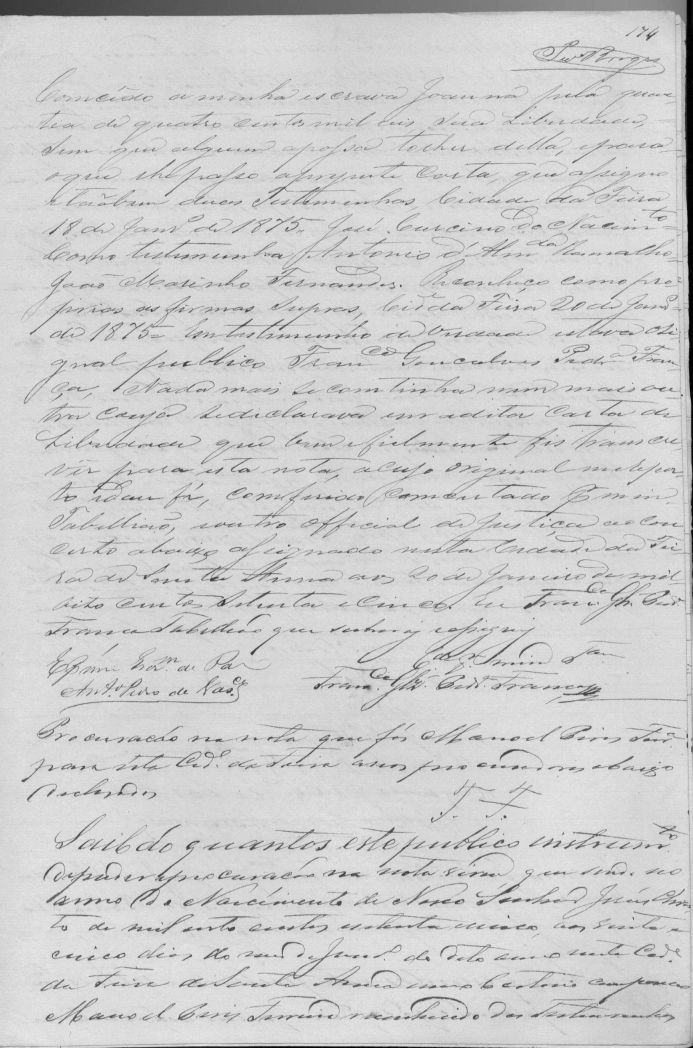 174
Concedo a minha escrava Joanna pela quan-
tia de quatro centos mil reis, sua Liberdade,
sem que alguem a possa tolher della, e para
o que lhe passo a presente Carta, que assigno
e tãobem duas Testimunhas. Cidade da Feira
18 de Janrº de 1875. José Curcino do Nacimto
Como testimunha Antonio d'Almda Ramalho
João Marinho Fernandes. Reconheço como pro-
prias as firmas supras, Cide da Feira 20 de Janrº
de 1875. Em testimunho de verdade estava o si
gnal publico Franco Gonçalves Pedrª Fran
ça, Nada mais se continha nem mais ou-
tra couza se declarava em a dita Carta de
Liberdade que bem e fielmente fis transcre-
ver para esta nota, a cujo original me repor-
to e dou fé, conferido concertado e min
Tabellião, e outro official de Justiça ao con
certo abaixo assignado nesta Cidade da Fei
ra de Santa Anna aos 20 de Janeiro de mil
oito centos setenta e cinco. Eu Franco Glz Pedrª
França Tabellião que subscrevi e assignei
E p mim Escrm de Paz
Antº Pedro de Vascos
Cdo p mim Tam
Franco Glz Pedrª França
Procuração na nota que fás Manoel Pires Ferrª
para esta Cide da Feira a seus procuradores abaixo
declarados
Saibão quantos este publico instrumto
de poder e procuração na nota virem que sendo no
anno do Nascimento de Nosso Senhor Jesus Chris
to de mil oito centos setenta e cinco, aos vinte e
cinco dias do mes de Janrº do dito anno nesta Cide
da Feira de Santa Anna em o Cartorio compareceo
Manoel Pires Ferreira reconhecido das testimunhas